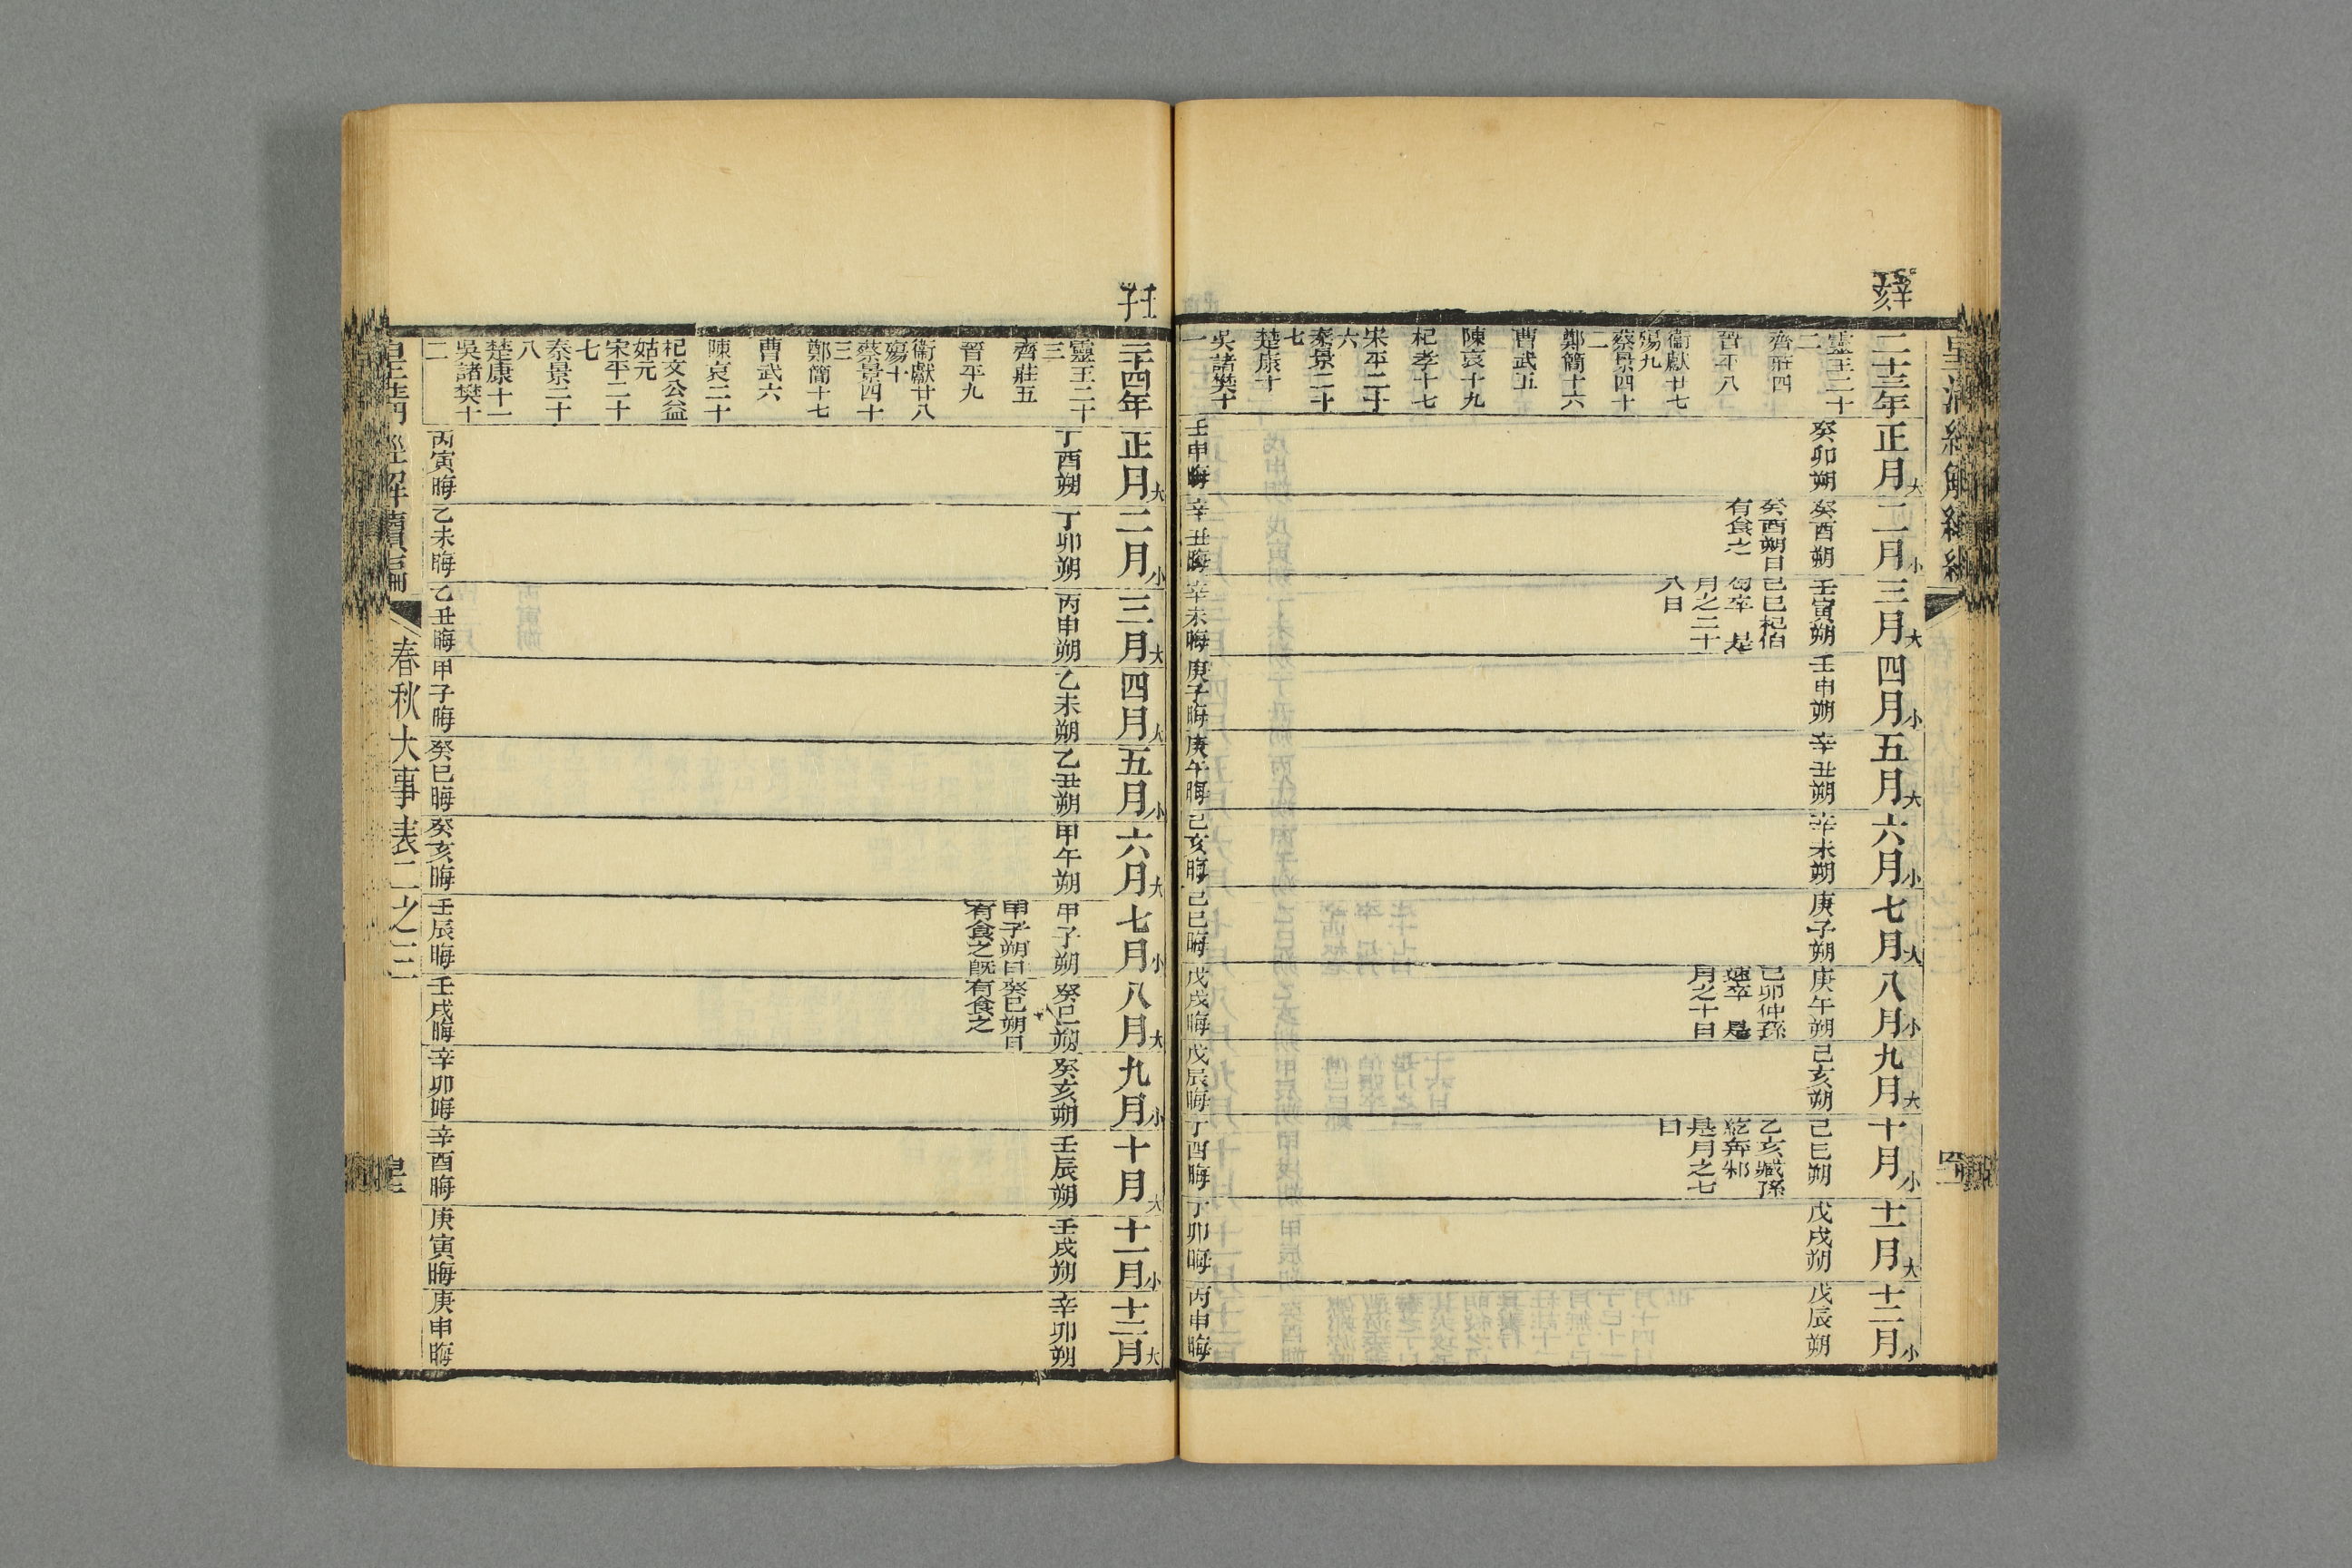 辛亥
二十三年
正月大
二月小
三月大
四月小
五月大
六月小
七月大
八月小
九月大
十月小
十一月大
十二月小
靈王二十
二
齊莊四
晉平八
衞獻廿七
殤九
蔡景四十
二
鄭簡十六
曹武五
陳哀十九
杞孝十七
宋平二十
六
秦景二十
七
楚康十
吳諸樊十
一
癸卯朔
壬申晦
癸酉朔
癸酉朔日
有食之
辛丑晦
壬寅朔
己巳杞伯
匄卒 是
月之二十
八日
辛未晦
壬申朔
庚子晦
辛丑朔
庚午晦
辛未朔
己亥晦
庚子朔
己巳晦
庚午朔
己卯仲孫
速卒 是
月之十日
戊戌晦
己亥朔
戊辰晦
己巳朔
乙亥臧孫
紇奔邾
是月之七
日
丁酉晦
戊戌朔
丁卯晦
戊辰朔
丙申晦
壬子
二十四年
正月大
二月小
三月大
四月大
五月小
六月大
七月小
八月大
九月小
十月大
十一月小
十二月大
靈王二十
三
齊莊五
晉平九
衞獻廿八
殤十
蔡景四十
三
鄭簡十七
曹武六
陳哀二十
杞文公益
姑元
宋平二十
七
秦景二十
八
楚康十一
吳諸樊十
二
丁酉朔
丙寅晦
丁卯朔
乙未晦
丙申朔
乙丑晦
乙未朔
甲子晦
乙丑朔
癸巳晦
甲午朔
癸亥晦
甲子朔
甲子朔日
有食之旣
壬辰晦
癸巳朔
癸巳朔日
有食之
壬戌晦
癸亥朔
辛卯晦
壬辰朔
辛酉晦
壬戌朔
庚寅晦
辛卯朔
庚申晦
皇清經解續編
春秋大事表二之三